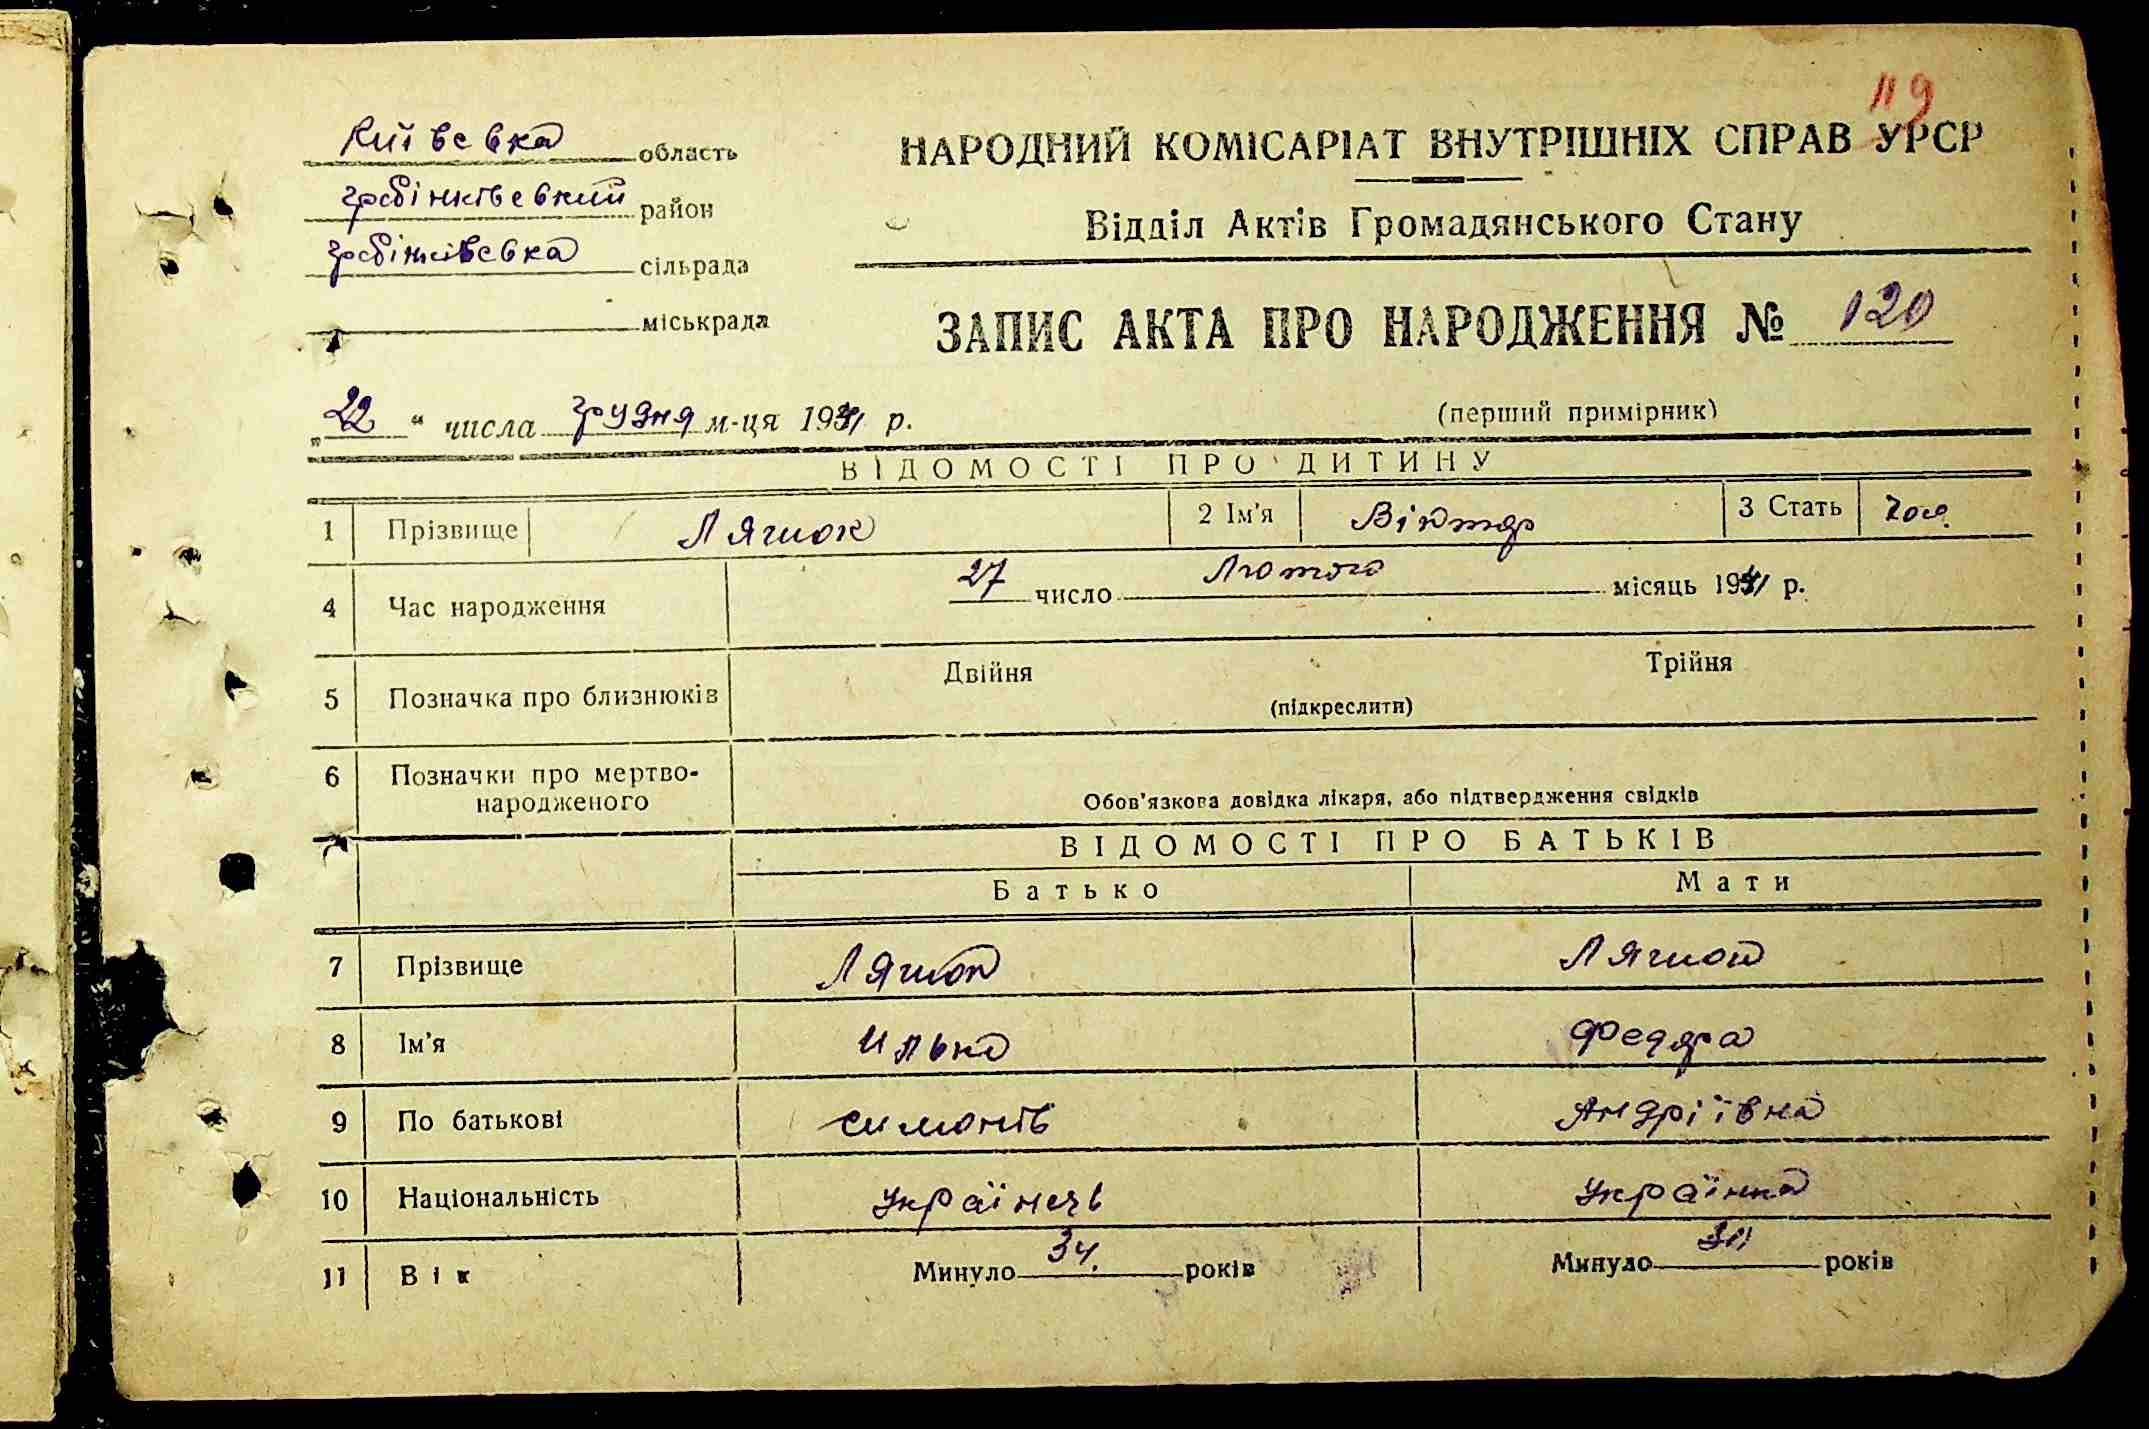 119
Київська область
гребінківський район
гребінківська сільрада
міськрада
НАРОДНИЙ КОМІСАРІАТ ВНУТРІШНІХ СПРАВ УРСР
Відділ Актів Громадянського Стану
ЗАПИС АКТА ПРО НАРОДЖЕННЯ № 120
„22“ числа грудня м-ця 1941 р.
(перший примірник)
ВІДОМОСТІ ПРО ДИТИНУ
1 Прізвище Лячок 2 Ім'я Віктор 3 Стать чол
4 Час народження 27 число Лютого місяць 1941 р.
5 Позначка про близнюків Двійня Трійня
(підкреслити)
6 Позначки про мертво-
народженого
Обов'язкова довідка лікаря, або підтвердження свідків
ВІДОМОСТІ ПРО БАТЬКІВ
Батько Мати
7 Прізвище
8 Ім'я Илько Федора
9 По батькові Симонів Андріївна
10 Національність Українець Українка
11 Вік Минуло 34 років Минуло років